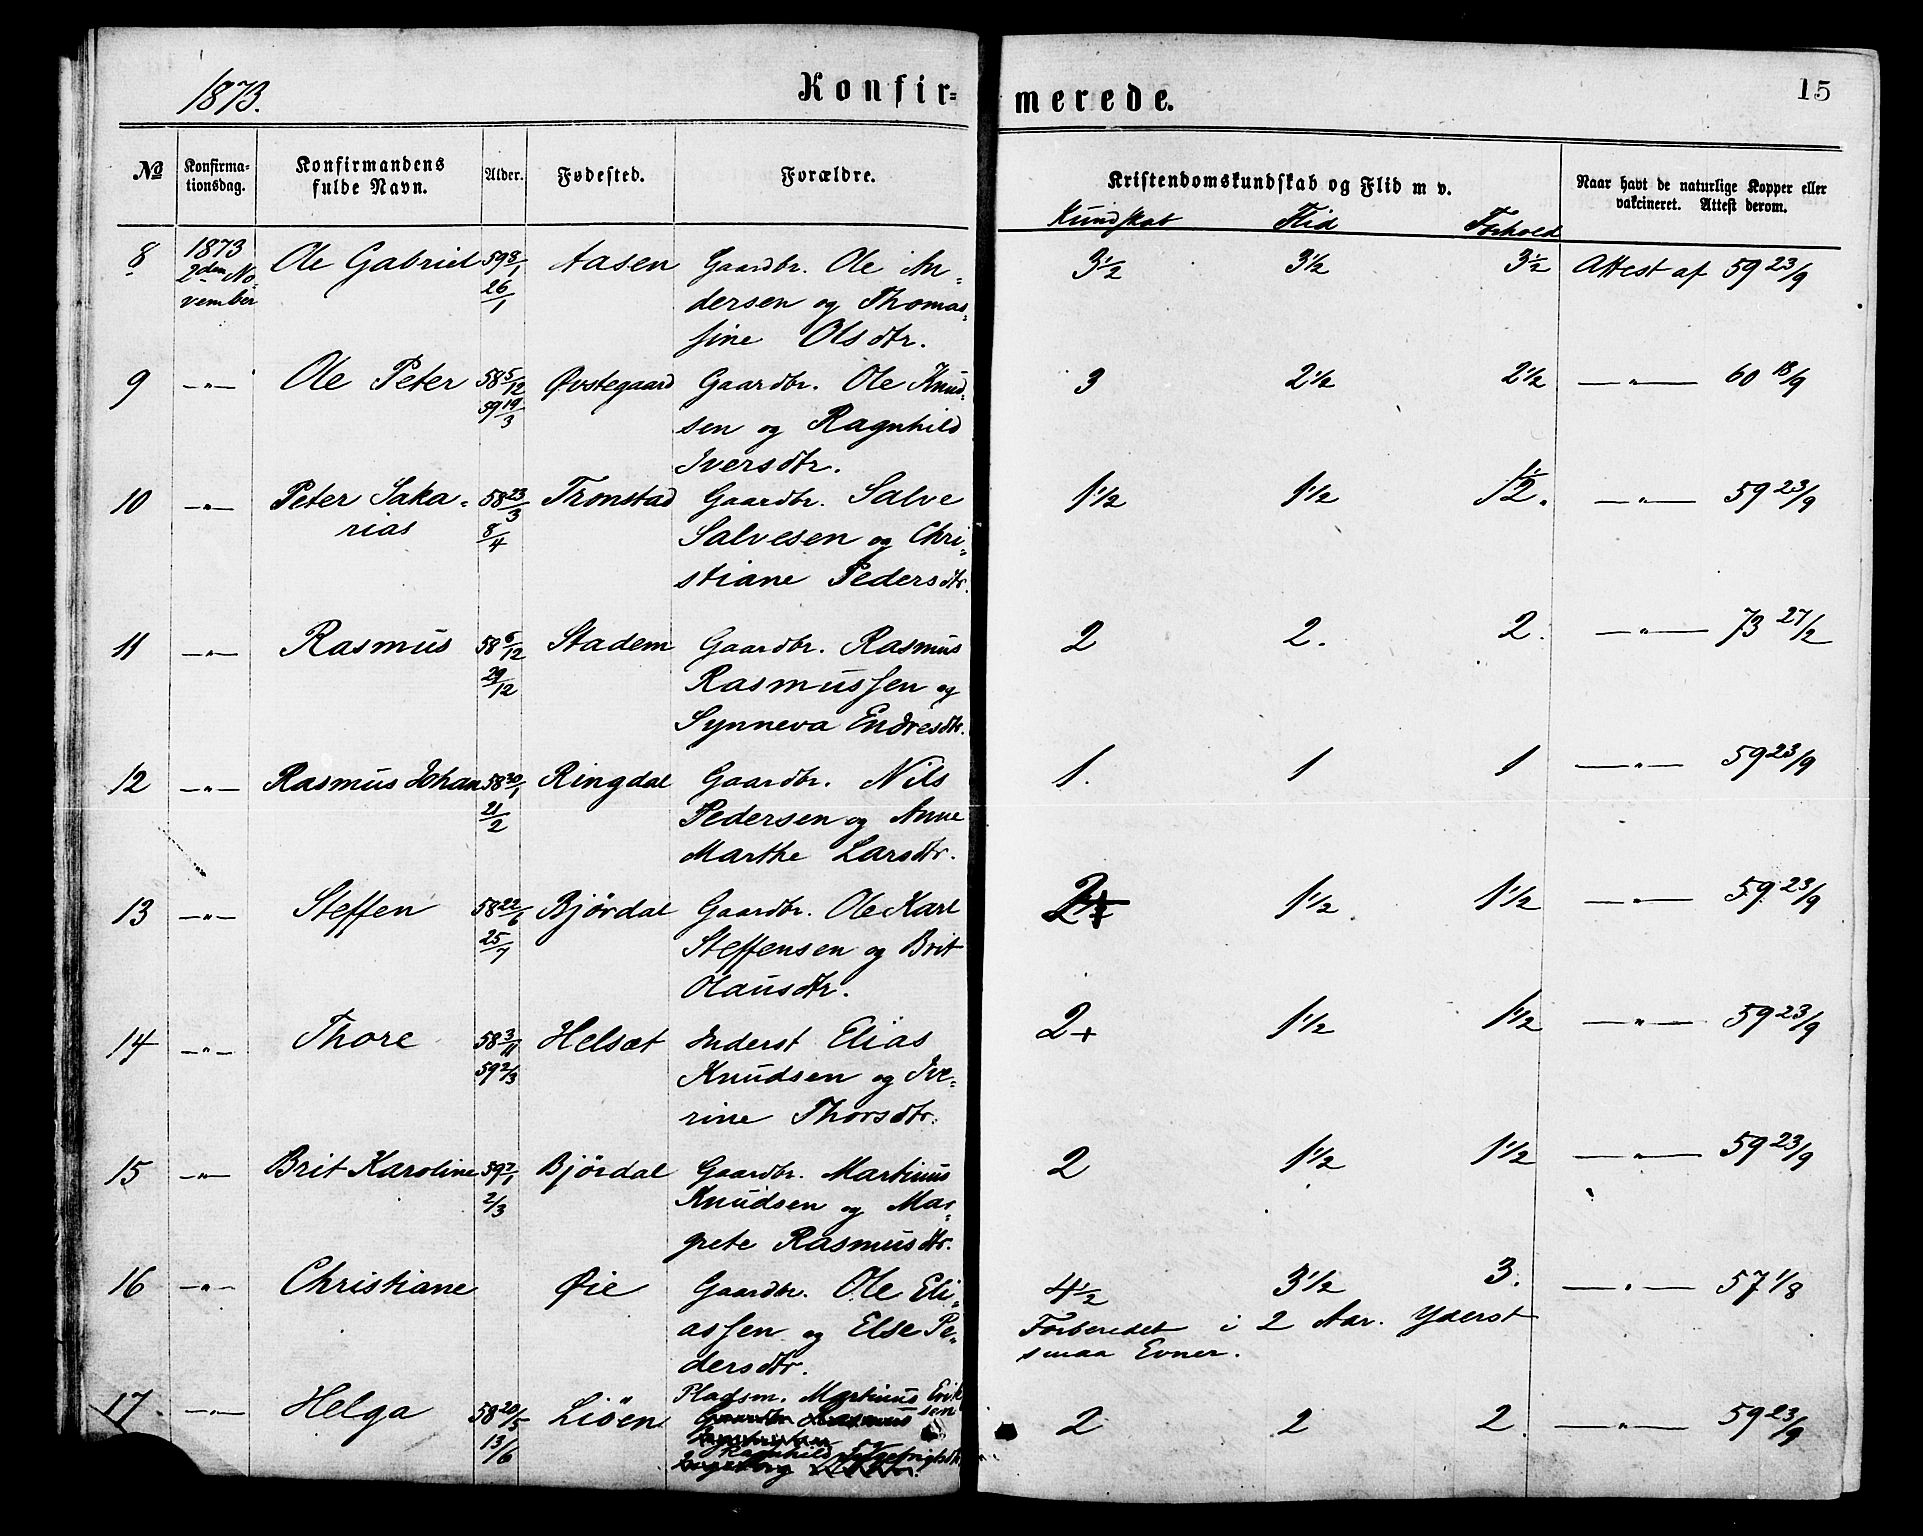 1873.
Konfir=
merede.
15
No
Konfirma-
tionsdag.
Konfirmandens
fulde Navn.
Alder.
Fødested.
Forældre.
Kristendomskundskab og Flid m v.
Naar havt de naturlige Kopper eller
vakcineret. Attest derom.
Kundskab Flid Forhold
8 1873 Ole Gabriel 59 8/1 Aasen Gaardbr. Ole An- 3½ 3½ 3½ Attest af 59 23/9
2den No- 26/1 dersen og Thomas-
vember sine Olsdtr.
9 —"— Ole Peter 58 5/12 Øvstegaard Gaardbr. Ole Knud- 3 2½ 2½ —"— 60 18/9
59 19/3 sen og Ragnhild
Iversdtr.
10 —"— Peter Saka- 58 23/3 Tronstad Gaardbr. Salve 1½ 1½ 1½. —"— 59 23/9
rias 8/4 Salvesen og Chri-
stiane Pedersdtr.
11 —"— Rasmus 58 6/12 Stadem Gaardbr. Rasmus 2 2. 2. —"— 73 27/2
29/12 Rasmussen og
Synneva Endresdtr.
12 —"— Rasmus Johan 58 30/1 Ringdal Gaardbr. Nils 1. 1 1 —"— 59 23/9
21/2 Pedersen og Anne
Marthe Larsdtr.
13 —"— Steffen 58 22/6 Bjørdal Gaardbr. Ole Karl 2+ 1½. 1½ —"— 59 23/9
25/7 Steffensen og Brit
Olausdtr.
14 —"— Thore 58 3/11 Helsæt Inderst Elias 2+ 1½ 1½ —"— 59 23/9
59 2/3 Knudsen og Ive-
rine Thorsdtr.
15 —"— Brit Karoline 59 2/1 Bjørdal Gaardbr. Martinus 2 1½ 1½ —"— 59 23/9
2/3 Knudsen og Mar-
grete Rasmusdtr.
16 —"— Christiane Øie Gaardbr. Ole Eli- 4½ 3½ 3. —"— 57 1/8
assen og Else Pe- Forberedet i 2 Aar. Yderst
dersdtr. smaa Evner.
17. —"— Helga 58 20/5 Liøen Pladsm. Martinus Erik 2 2 2. —"— 59 23/9
13/6 Gaardbr. Rasmus sen
og
Ragnhild
Ingeborg